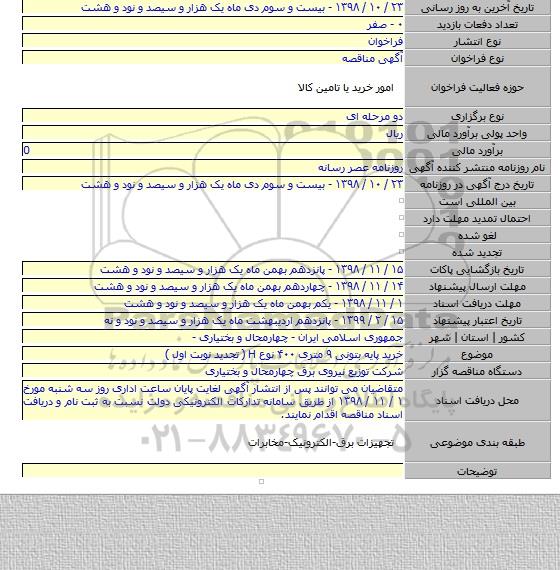 تاریخ آخرین به روز رسانی ۲۳ / ۱۰ / ۱۳۹۸ - بیست و سوم دی ماه یک هزار و سیصد و نود و هشت
تعداد دفعات بازدید ۰ - صفر
نوع انتشار فراخوان
نوع فراخوان آگهی مناقصه
حوزه فعالیت فراخوان امور خرید یا تامین کالا
نوع برگزاری دو مرحله ای
واحد پولی برآورد مالی ریال
برآورد مالی 0
نام روزنامه منتشر کننده آگهی روزنامه عصر رسانه
تاریخ درج آگهی در روزنامه ۲۳ / ۱۰ / ۱۳۹۸ - بیست و سوم دی ماه یک هزار و سیصد و نود و هشت
بین المللی است
احتمال تمدید مهلت دارد
لغو شده
تجدید شده
تاریخ بازگشایی پاکات ۱۵ / ۱۱ / ۱۳۹۸ - پانزدهم بهمن ماه یک هزار و سیصد و نود و هشت
مهلت ارسال پیشنهاد ۱۴ / ۱۱ / ۱۳۹۸ - چهاردهم بهمن ماه یک هزار و سیصد و نود و هشت
مهلت دریافت اسناد ۱ / ۱۱ / ۱۳۹۸ - یکم بهمن ماه یک هزار و سیصد و نود و هشت
تاریخ اعتبار پیشنهاد ۱۵ / ۲ / ۱۳۹۹ - پانزدهم اردیبهشت ماه یک هزار و سیصد و نود و نه
کشور | استان | شهر جمهوری اسلامی ایران - چهارمحال و بختیاری -
موضوع خرید پایه بتونی ۹ متری ۴۰۰ نوع H ( تجدید نوبت اول )
دستگاه مناقصه گزار شرکت توزیع نیروی برق چهارمحال و بختیاری
محل دریافت اسناد متقاضیان می توانند پس از انتشار آگهی لغایت پایان ساعت اداری روز سه شنبه مورخ
۱ / ۱۱ / ۱۳۹۸ از طریق سامانه تدارکات الکترونیکی دولت نسبت به ثبت نام و دریافت
اسناد مناقصه اقدام نمایند.
طبقه بندی موضوعی تجهیزات برق-الکترونیک-مخابرات
توضیحات
۰۲۱-۸۸۳۴۹۶۷۰-۵